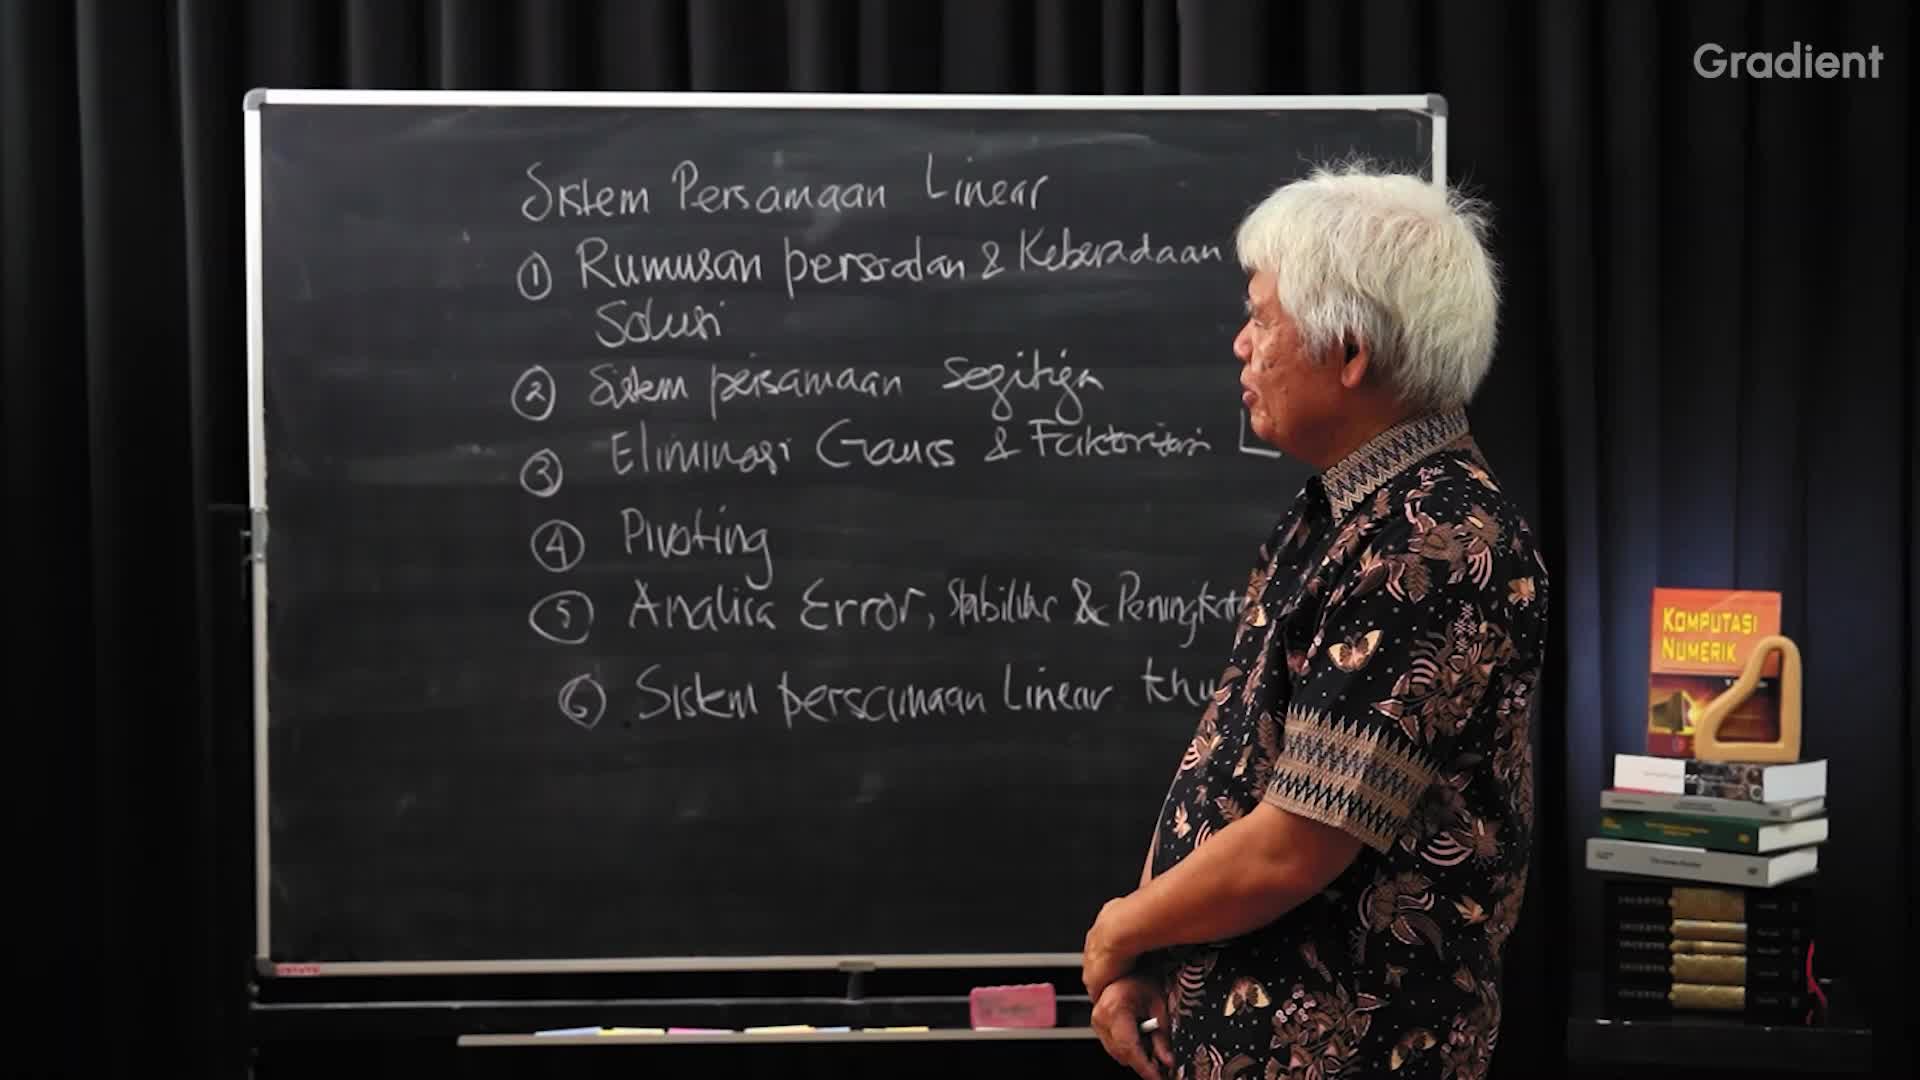 Gradient
Sistem Persamaan Linear
① Rumusan persoalan & Keberadaan
Solusi
② Sistem persamaan segitiga
③ Eliminasi Gauss & Faktorisasi L
④ Pivoting
⑤ Analisa Error, Stabilitas & Peningkata
⑥ Sistem persamaan Linear khu
KOMPUTASI
NUMERIK